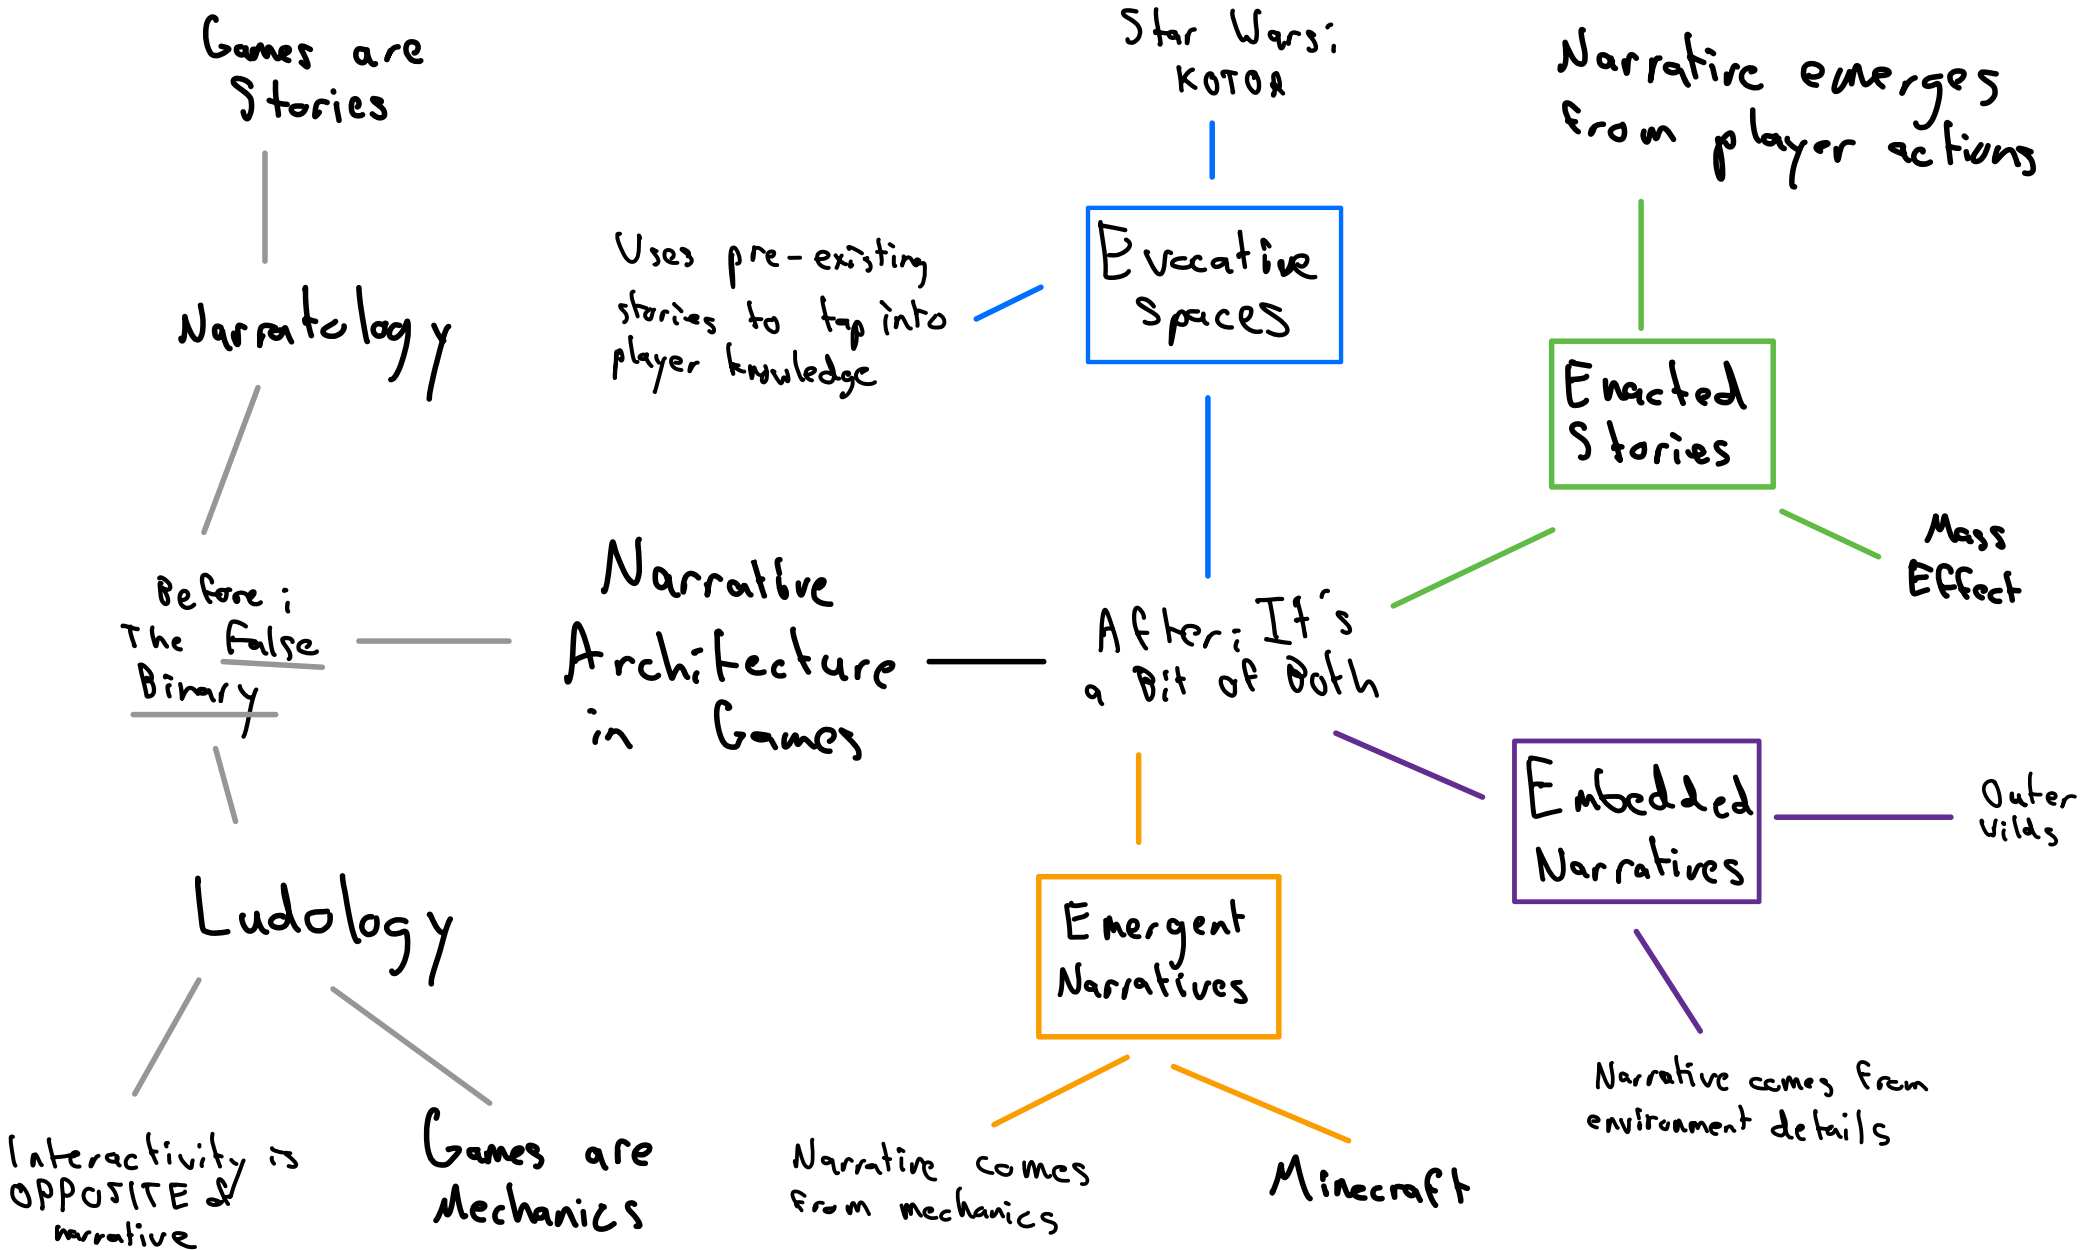 Games are
Stories
Narratology
Before:
The False
Binary
Ludology
Interactivity is
OPPOSITE of
narrative
Games are
Mechanics
Narrative
Architecture
in Games
After: It's
a Bit of Both
Star Wars:
KOTOR
Evocative
Spaces
Uses pre-existing
stories to tap into
player knowledge
Narrative emerges
from player actions
Enacted
Stories
Mass
Effect
Embedded
Narratives
Outer
Wilds
Narrative comes from
environment details
Emergent
Narratives
Narrative comes
from mechanics
Minecraft